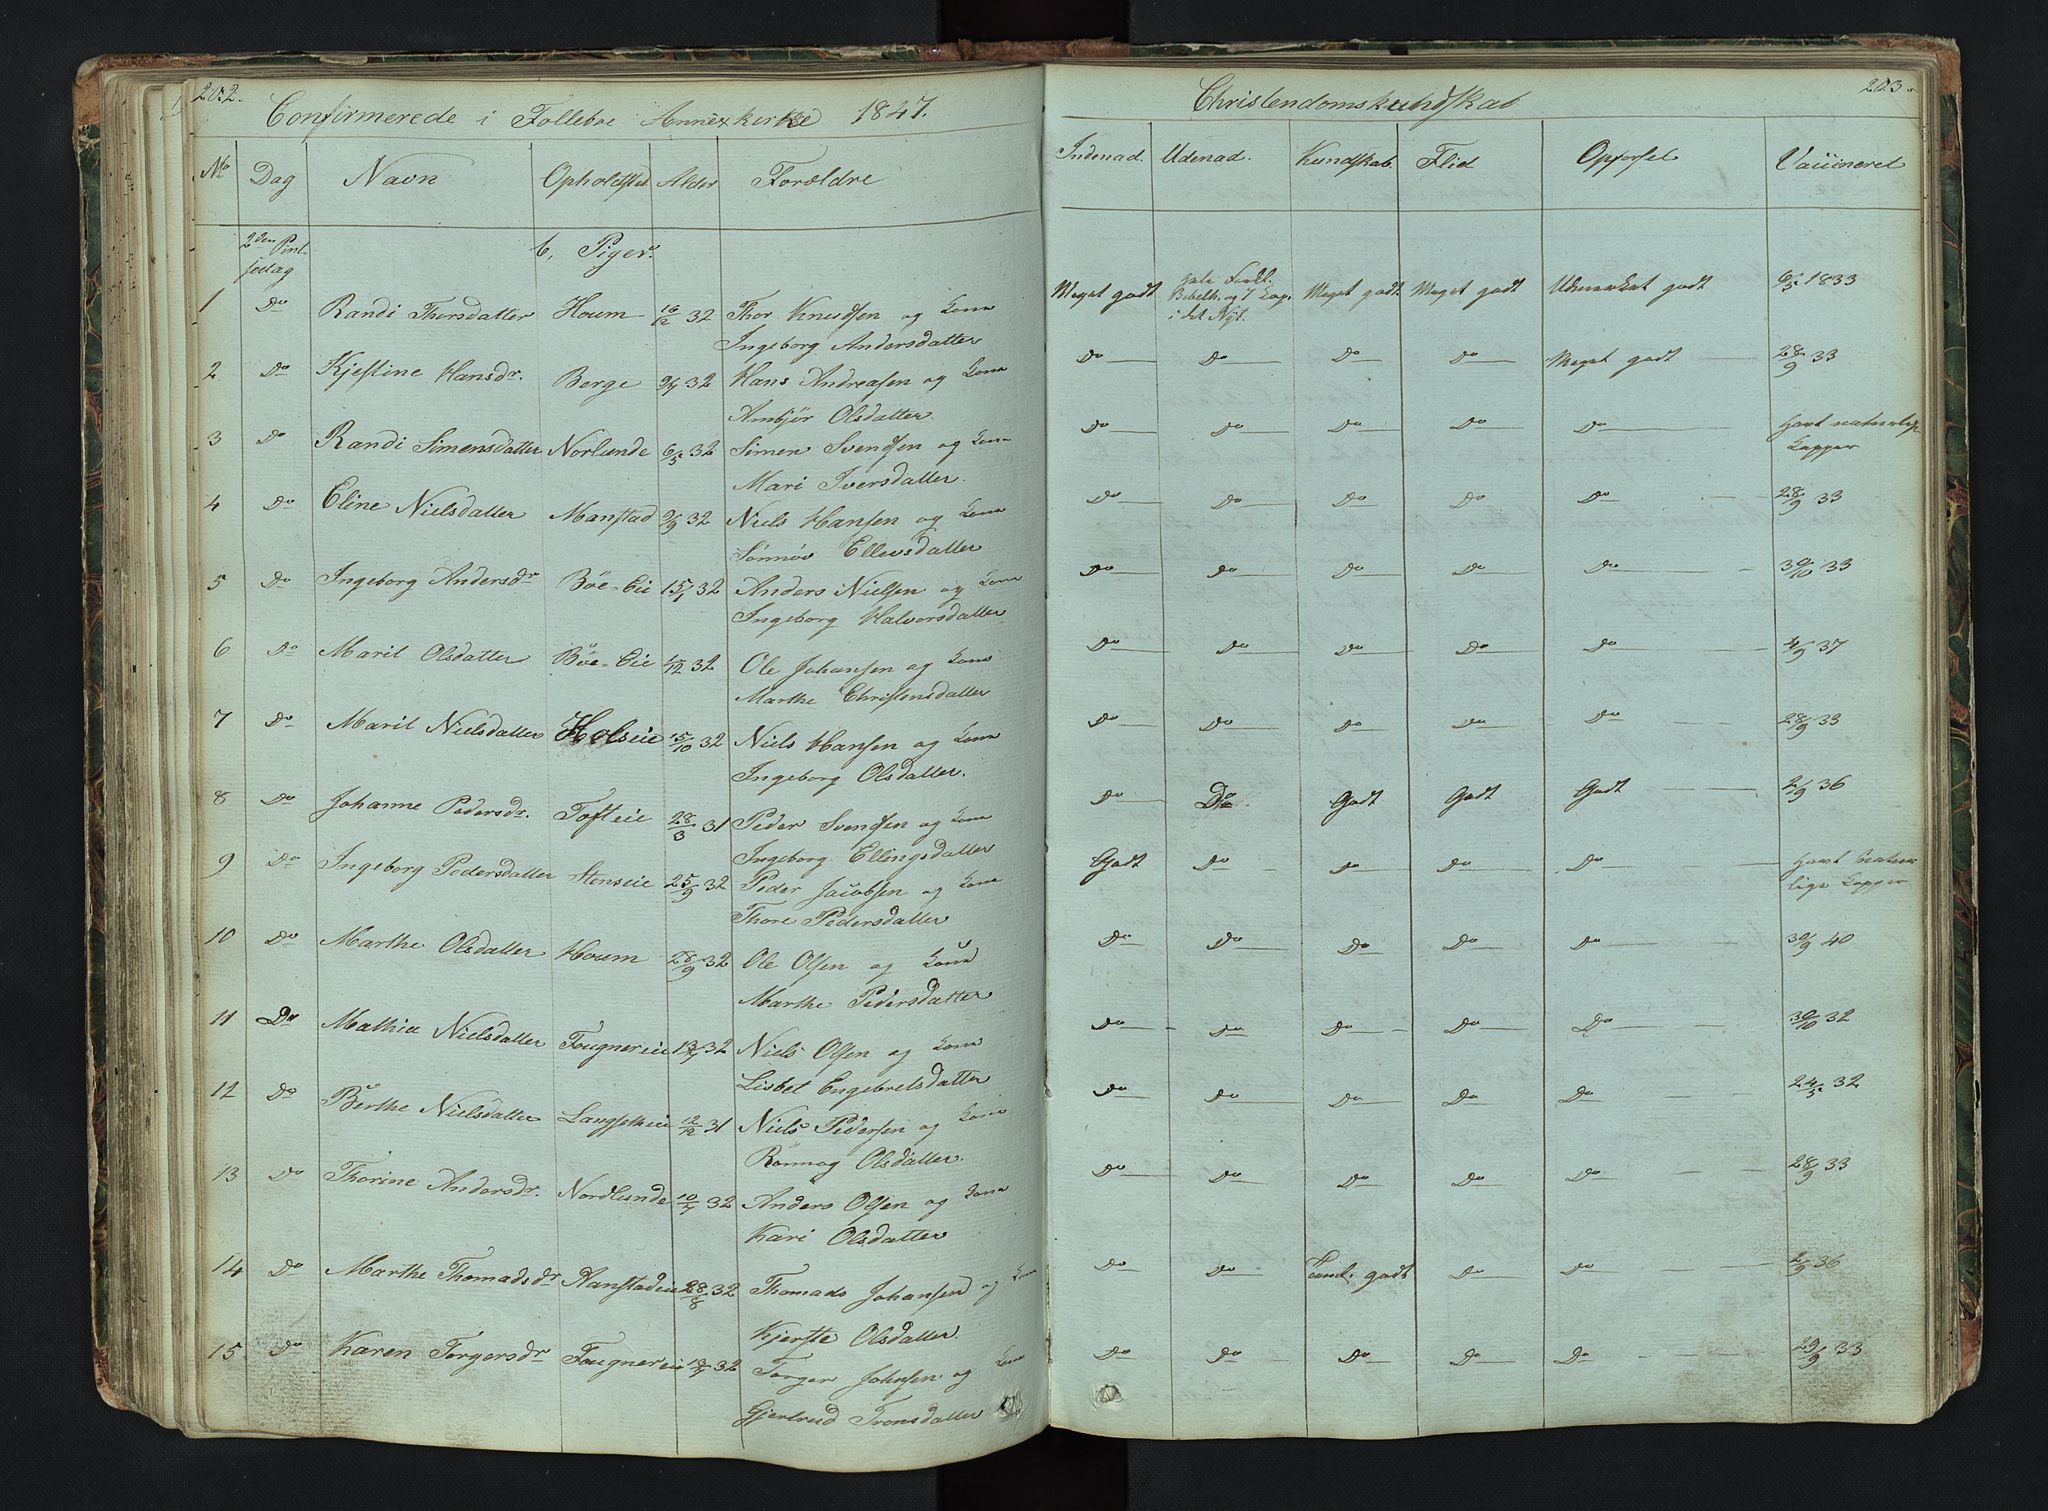 202.
Confirmerede i Folleboe Annexkirke 1847.
No Dag Navn Opholdsted Alder Forældre
2den Pint-
sedag
b, Piger.
1 Do Randi Thorsdatter Houm 16/12 32 Thor Knudsen og Kone
Ingeborg Andersdatter
2 Do Kjestine Hansdr. Berge 32 Hans Andreasen og Kone
Ambjør Olsdatter.
3 Do Randi Simensdatter Norlunde 6/5 32 Simen Svendsen og Kone
Mari Iversdatter.
4 Do Eline Nielsdatter 32 Niels Hansen og Kone
Sønnøv Ellevsdatter
5 Do Ingeborg Andersdr Böe-Eie 15/1 32 Anders Nielsen og Kone
Ingeborg Halvorsdatter
6 Do Marit Olsdatter Böe-Eie 32 Ole Johansen og Kone
Marthe Christensdatter
7 Do Marit Nielsdatter Holseie 15/10 32 Niels Hansen og Kone
Ingeborg Olsdatter.
8 Do Johanne Pedersdr. Tofteie 28/3 31 Peder Svendsen og Kone
Ingeborg Ellingsdatter
9 Do Ingeborg Pedersdatter Stenseie 25/9 32 Peder Jacobsen og Kone
Thore Pedersdatter
10 Do Marthe Olsdatter Houm 28/9 32 Ole Olsen og Kone
Marthe Pedersdatter
11 Do Mathia Nielsdatter Fougnereie 32 Niels Olsen og Kone
Lisbet Engebretsdatter
12 Do Berthe Nielsdatter Langsetheie 12/12 31 Niels Pedersen og Kone
Rönnog Olsdatter.
13 Do Thorine Andersdr. Nordlunde 32 Anders Olsen og Kone
Kari Olsdatter
14 Do Marthe Thomadsdr Aanstadeie 28/8 32 Thomads Johansen og Kone
Kjerste Olsdatter.
15 Do Karen Torgersdr Fougnereie 32 Torger Johnsen og Kone
Gjertrud Tronsdatter
203.
Christendomskundskab
Indenad. Udenad. Kundskab. Flid Opførsel Vaccineret
Meget godt hele Forkl. Bibelh. og 7 Cap. i det Nyt. Meget godt Meget godt Udmærket godt 6/5 1833
Do Do Do Do Meget godt 28/9 33
Do Do Do Do Do Havt naturlige
Kopper
Do Do Do Do Do 28/9 33
Do Do Do Do Do 30/10 33
Do Do Do Do Do 37
Do Do Do Do Do 28/9 33
Do Do Godt Godt Godt 2/9 36
Godt Do Do Do Do Havt natur-
lige Kopper
Do Do Do Do Do 30/9 40
Do Do Do Do Do 30/10 32
Do Do Do Do Do 24/5 32
Do Do Do Do Do 28/9 33
Do Do Temml. godt Do Do 2/9 36
Do Do Do Do Do 29/9 33